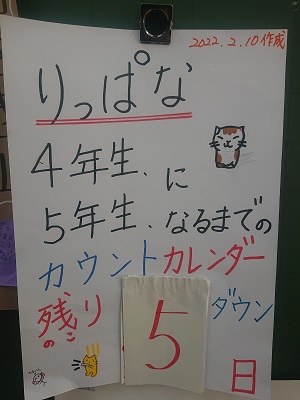 2022.2.10作成
りっぱな
4年生、に
5年生、なるまでの
カウントカレンダー
ダウン
残り
のこ
5
日